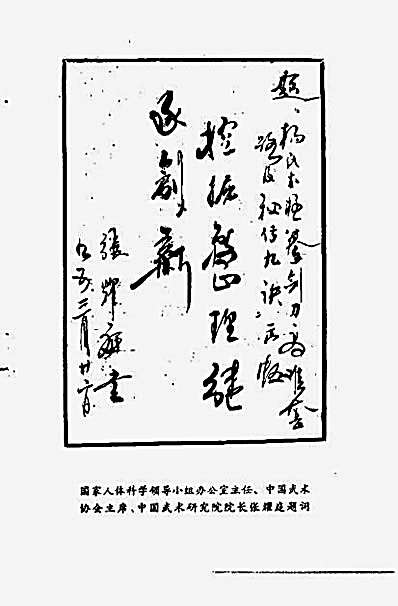 题、杨氏太极拳剑刀高难套
路及秘传九诀
挖掘整理继
承创新
张耀庭书
九五.三月廿六日
国家人体科学领导小组办公室主任、中国武术
协会主席、中国武术研究院院长张耀庭题词